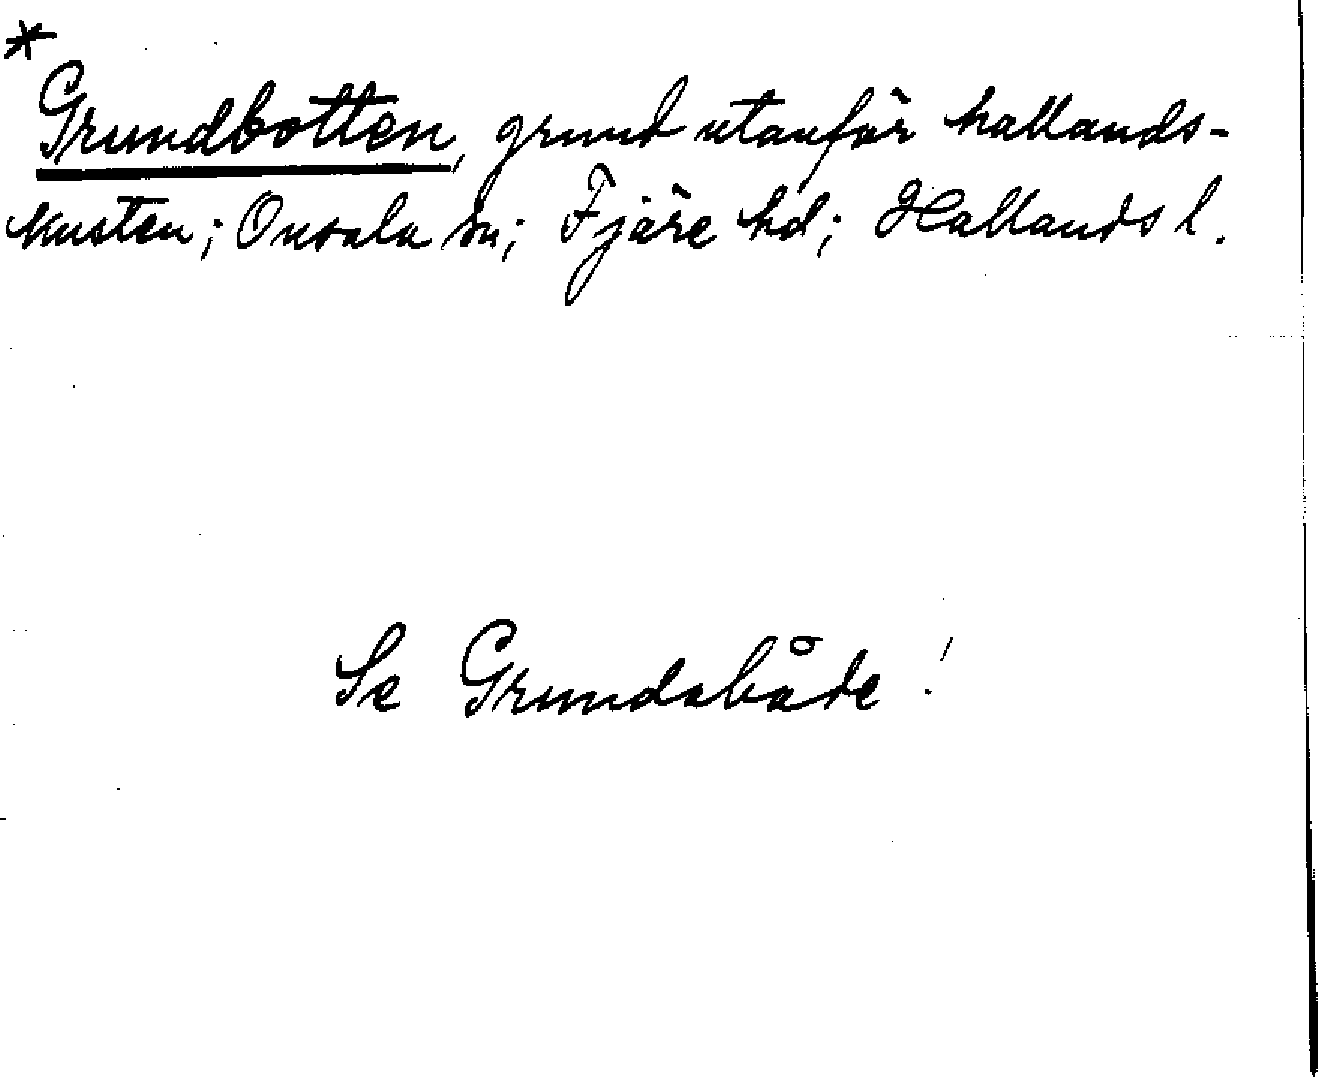 *
Grundbotten, grund utanför hallands-
kusten; Onsala sn; Fjäre hd; Hallands l.
Se Grundabåde!